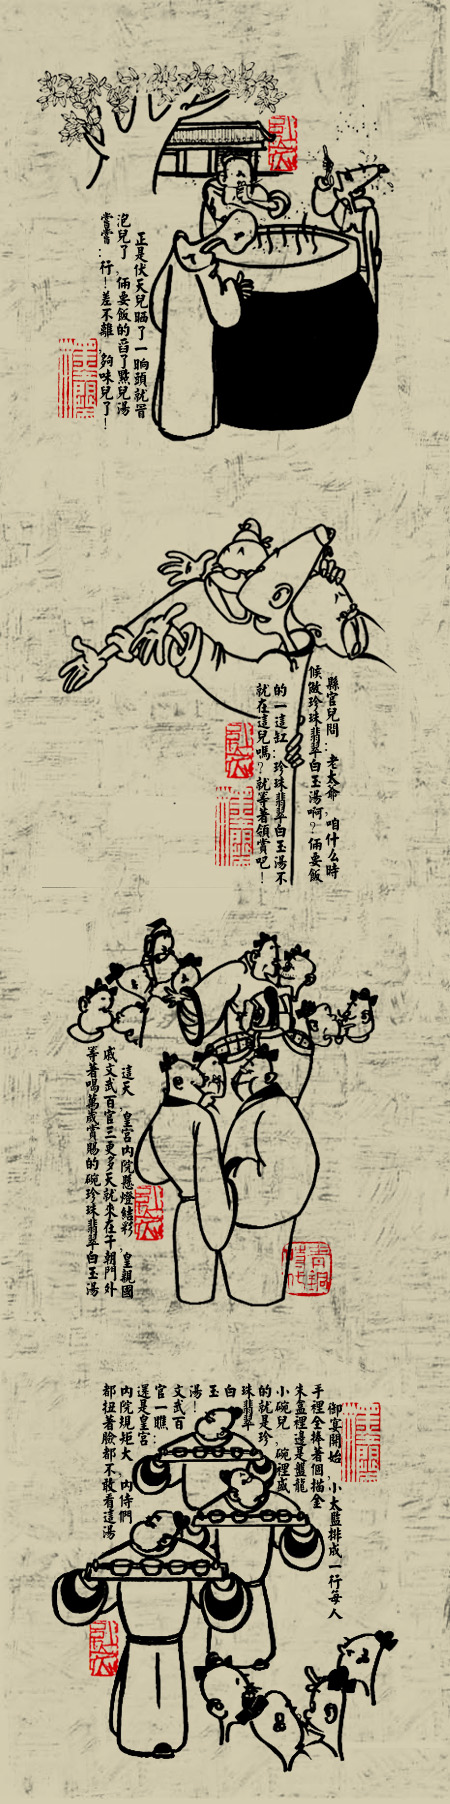 正是伏天兒晒了一晌頭就冒
泡兒了，倆要飯的舀了點兒湯
嘗嘗：行！差不離，夠味兒了！
縣官兒問：老太爺，咱什么時
候做珍珠翡翠白玉湯啊？倆要飯
的一這缸：珍珠翡翠白玉湯不
就在這兒嗎？就等著領賞吧！
這天，皇宮內院懸燈結彩，皇親國
戚文武百官三更多天就來在午朝門外
等著喝萬歲賞賜的碗珍珠翡翠白玉湯
御宴開始，小太監排成一行每人
手裡全捧著個描金
朱盒裡邊是盤龍
小碗兒，碗裡盛
的就是珍
珠翡翠
白
玉
湯！
文武百
官一瞧，
還是皇宮
內院規矩大，內侍們
都扭著臉都不敢看這湯